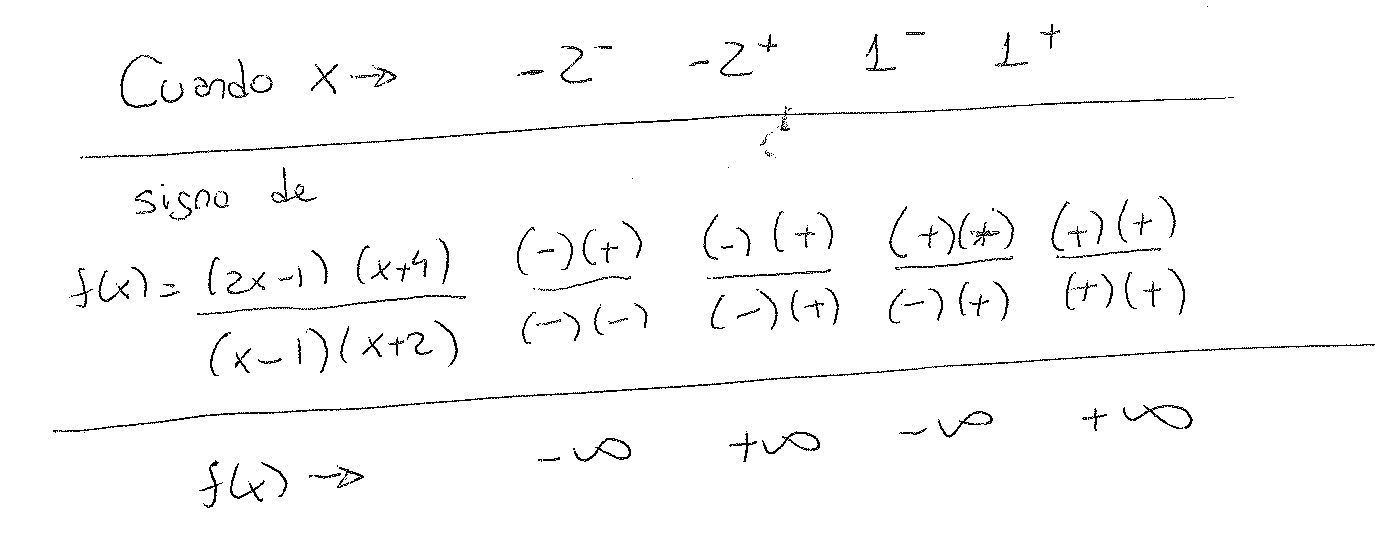 Cuando x→ -2⁻ -2⁺ 1⁻ 1⁺
signo de
f(x) = (2x-1) (x+4) / (x-1)(x+2) (-)(+) / (-)(-) (-)(+) / (-)(+) (+)(+) / (-)(+) (+)(+) / (+)(+)
f(x) → -∞ +∞ -∞ +∞